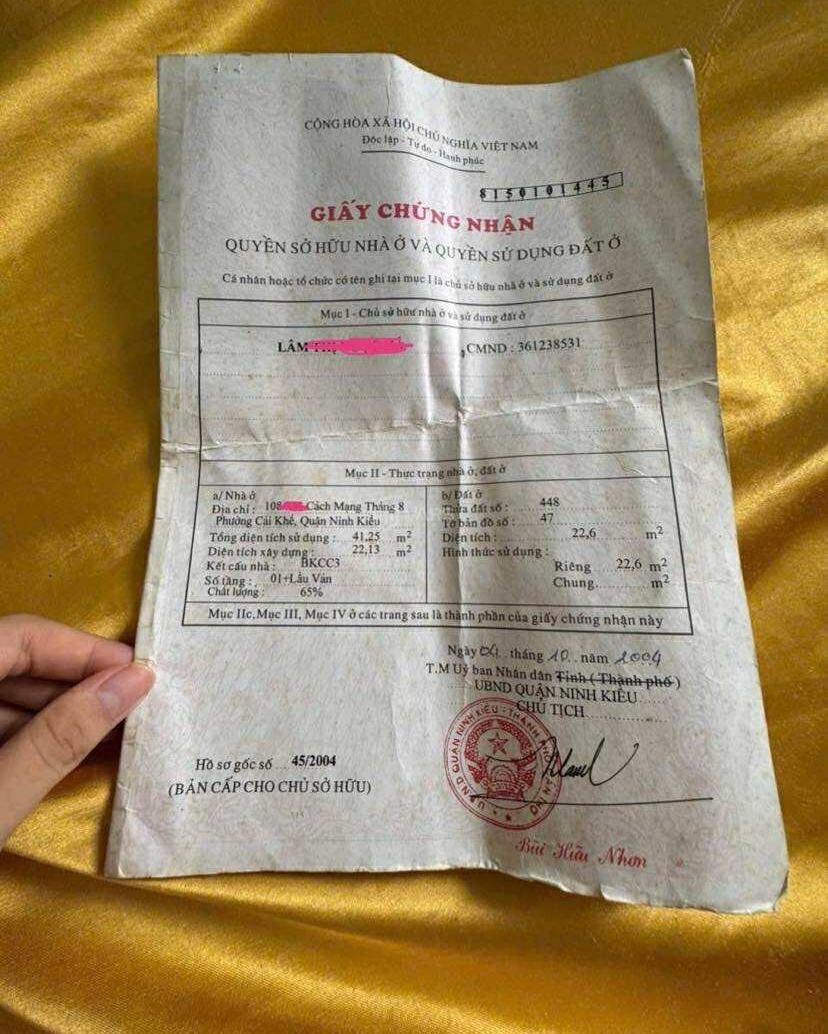 CỘNG HÒA XÃ HỘI CHỦ NGHĨA VIỆT NAM
Độc lập - Tự do - Hạnh phúc
8150101445
GIẤY CHỨNG NHẬN
QUYỀN SỞ HỮU NHÀ Ở VÀ QUYỀN SỬ DỤNG ĐẤT Ở
Cá nhân hoặc tổ chức có tên ghi tại mục I là chủ sở hữu nhà ở và sử dụng đất ở
Mục I - Chủ sở hữu nhà ở và sử dụng đất ở
LÂM , CMND : 361238531
Mục II - Thực trạng nhà ở, đất ở
a/ Nhà ở
Địa chỉ : 108 Cách Mạng Tháng 8
Phường Cái Khế, Quận Ninh Kiều
Tổng diện tích sử dụng : 41,25 m2
Diện tích xây dựng : 22,13 m2
Kết cấu nhà : BKCC3
Số tầng : 01+Lầu Ván
Chất lượng : 65%
b/ Đất ở
Thửa đất số : 448
Tờ bản đồ số : 47
Diện tích : 22,6 m2
Hình thức sử dụng :
Riêng 22,6 m2
Chung m2
Mục IIc, Mục III, Mục IV ở các trang sau là thành phần của giấy chứng nhận này
Ngày 04 tháng 10 năm 2004
T.M Uỷ ban Nhân dân Tỉnh ( Thành phố )
UBND QUẬN NINH KIỀU
CHỦ TỊCH
U.B.N.D QUẬN NINH KIỀU - THÀNH PHỐ CẦN THƠ
Bùi Hữu Nhơn
Hồ sơ gốc số 45/2004
(BẢN CẤP CHO CHỦ SỞ HỮU)